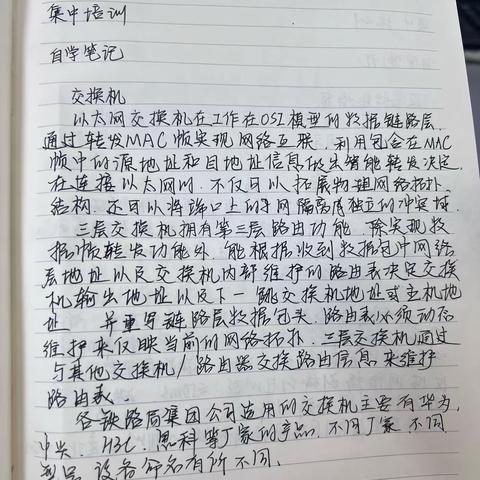 集中培训
自学笔记
交换机
以太网交换机在工作在OSI模型的数据链路层,
通过转发MAC帧实现网络互联,利用包含在MAC
帧中的源地址和目地址信息做出智能转发决定,
在连接以太网时,不仅可以拓展物理网络拓扑
结构,还可以将端口上的子网隔离为独立的冲突域.
三层交换机拥有第三层路由功能,除实现数
据帧转发功能外,能根据收到数据包中网络
层地址以及交换机内部维护的路由表决定交换
机输出地址以及下一跳交换机地址或主机地
址 并重写链路层数据包头.路由表必须动态
维护来反映当前的网络拓扑.三层交换机通过
与其他交换机/路由器交换路由信息来维护
路由表
各铁路局集团公司适用的交换机主要有华为,
中兴.H3C.思科等厂家的产品.不同厂家.不同
型号.设备命名有所不同.